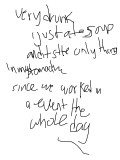 very drunk
i just ate soup
and it's the only thing
in my stomach
since we worked in
a event the
whole day